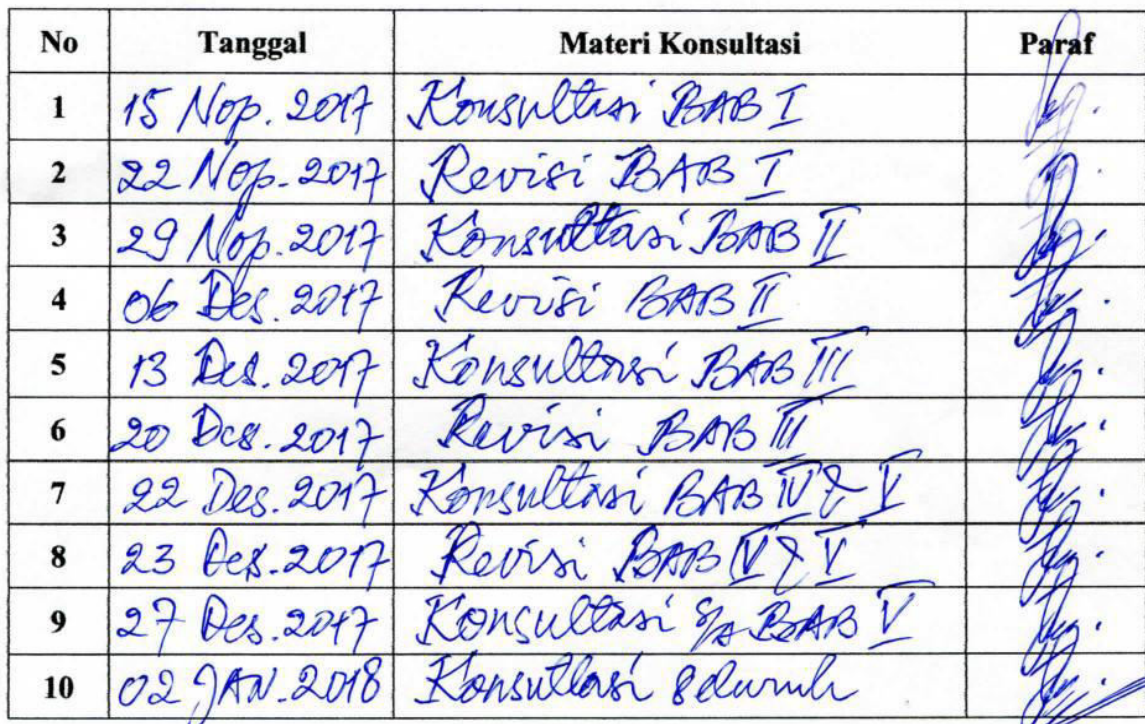 No Tanggal Materi Konsultasi Paraf
1 15 Nop. 2017 Konsultasi BAB I
2 22 Nop. 2017 Revisi BAB I
3 29 Nop. 2017 Konsultasi BAB II
4 06 Des. 2017 Revisi BAB II
5 13 Des. 2017 Konsultasi BAB III
6 20 Des. 2017 Revisi BAB III
7 22 Des. 2017 Konsultasi BAB IV & V
8 23 Des. 2017 Revisi BAB IV & V
9 27 Des. 2017 Konsultasi s/d BAB V
10 02 JAN. 2018 Konsultasi seluruh